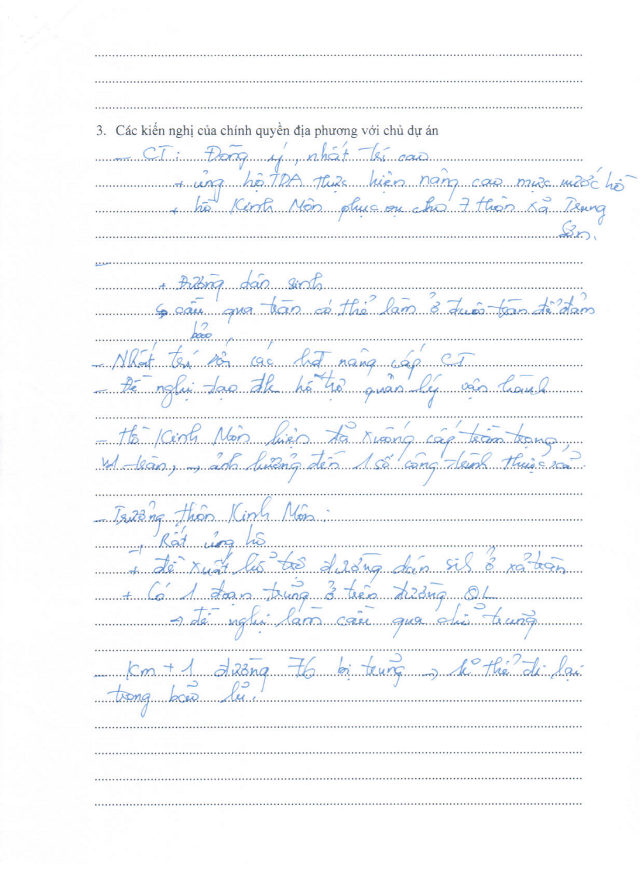 3. Các kiến nghị của chính quyền địa phương với chủ dự án
- CT: Đồng ý, nhất trí cao
+ ủng hộ TDA thực hiện nâng cao mực nước hồ
+ hồ Kinh Môn phục vụ cho 7 thôn xã Trung
Sơn.
-
+ Đường dân sinh
↳ cầu qua tràn có thể làm ở dưới tràn để đảm
bảo
- Nhất trí với các hđ nâng cấp CT
- Đề nghị tạo đk hỗ trợ quản lý vận hành
- Hồ Kinh Môn hiện đã xuống cấp trầm trọng
tràn, → ảnh hưởng đến 1 số công trình thuộc xã.
- Trưởng thôn Kinh Môn:
+ Rất ủng hộ
+ đề xuất hỗ trợ đường dân sih ở xả tràn
+ Có 1 đoạn trũng ở trên đường QL
→ đề nghị làm cầu qua chỗ trũng
- Km + 1 đường 76 bị trũng → k thể đi lại
trong bão lũ.